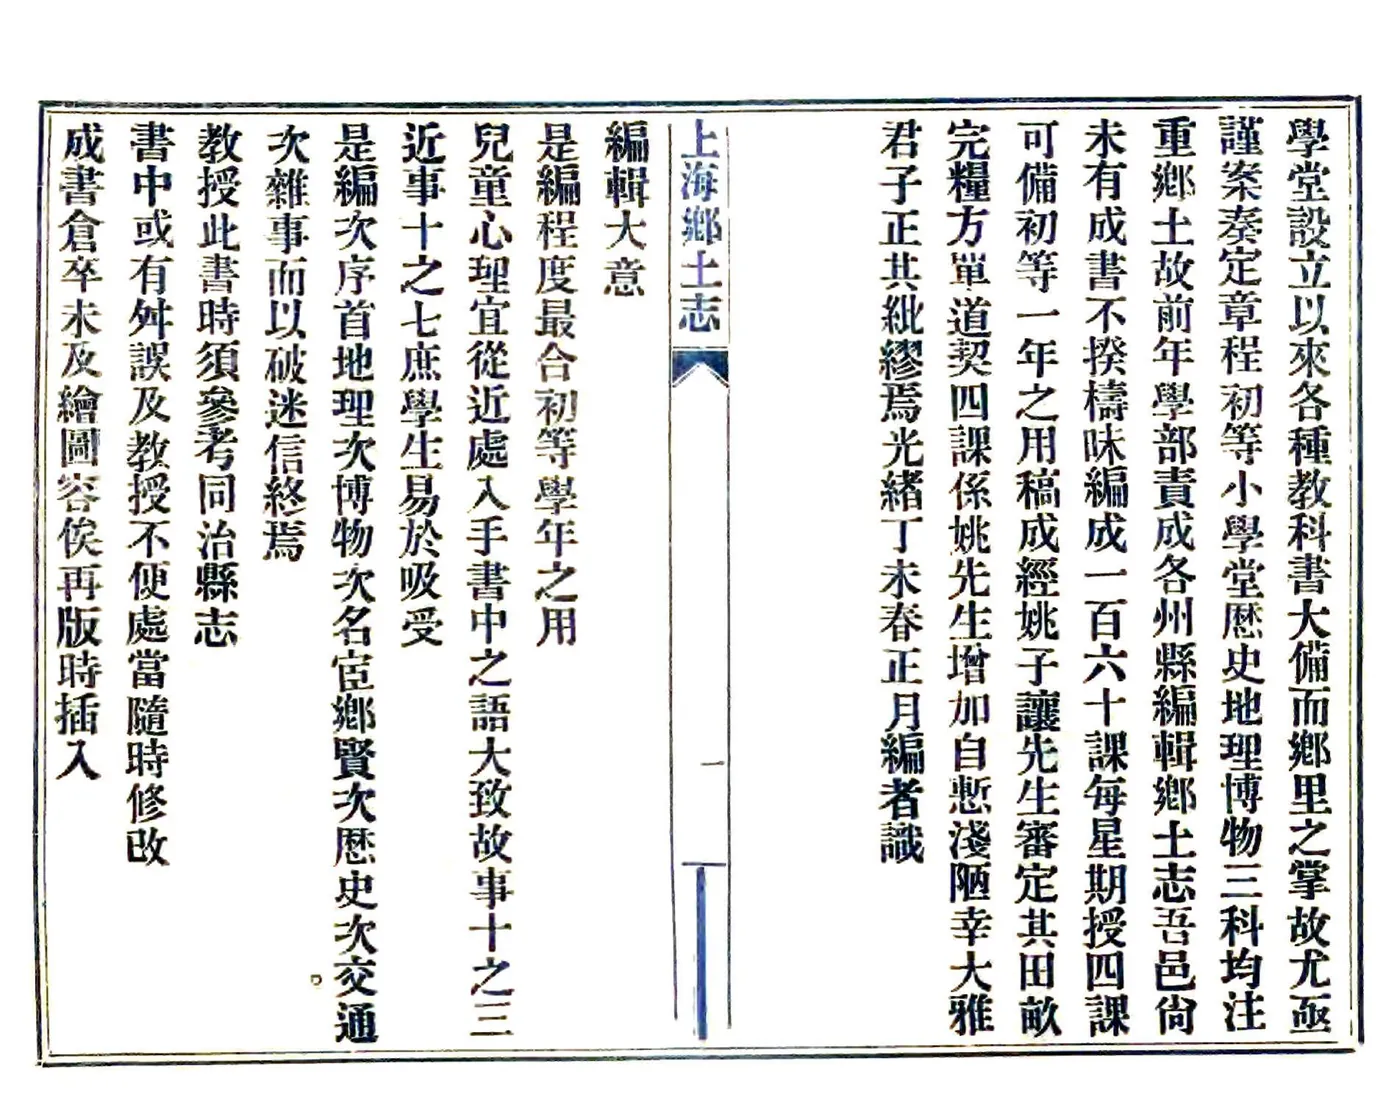 學堂設立以來各種教科書大備而鄉里之掌故尤亟
謹案奏定章程初等小學堂歷史地理博物三科均注
重鄉土故前年學部責成各州縣編輯鄉土志吾邑尙
未有成書不揆檮昧編成一百六十課每星期授四課
可備初等一年之用稿成經姚子讓先生審定其田畝
完糧方單道契四課係姚先生增加自慙淺陋幸大雅
君子正其紕繆焉光緒丁未春正月編者識
上海鄉土志
一
編輯大意
是編程度最合初等學年之用
兒童心理宜從近處入手書中之語大致故事十之三
近事十之七庶學生易於吸受
是編次序首地理次博物次名宦鄉賢次歷史次交通
次雜事而以破迷信終焉
教授此書時須參考同治縣志
書中或有舛誤及教授不便處當隨時修改
成書倉卒未及繪圖容俟再版時插入